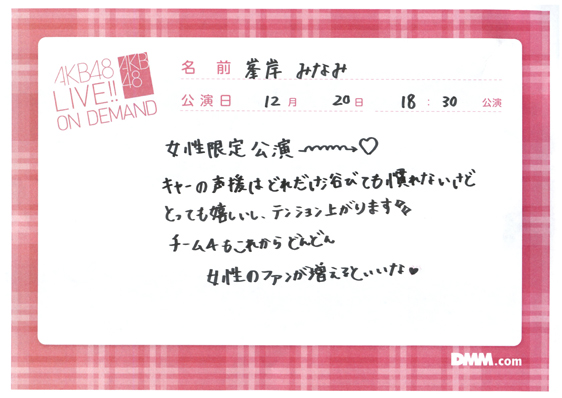 AKB48
LIVE!!
ON DEMAND
AKB
48
名前 峯岸 みなみ
公演日 12月 20日 18:30 公演
女性限定公演 ♡
キャーの声援はどれだけ浴びても慣れないけど
とっても嬉しいし、テンション上がります
チーム4もこれからどんどん
女性のファンが増えるといいな♥
DMM.com